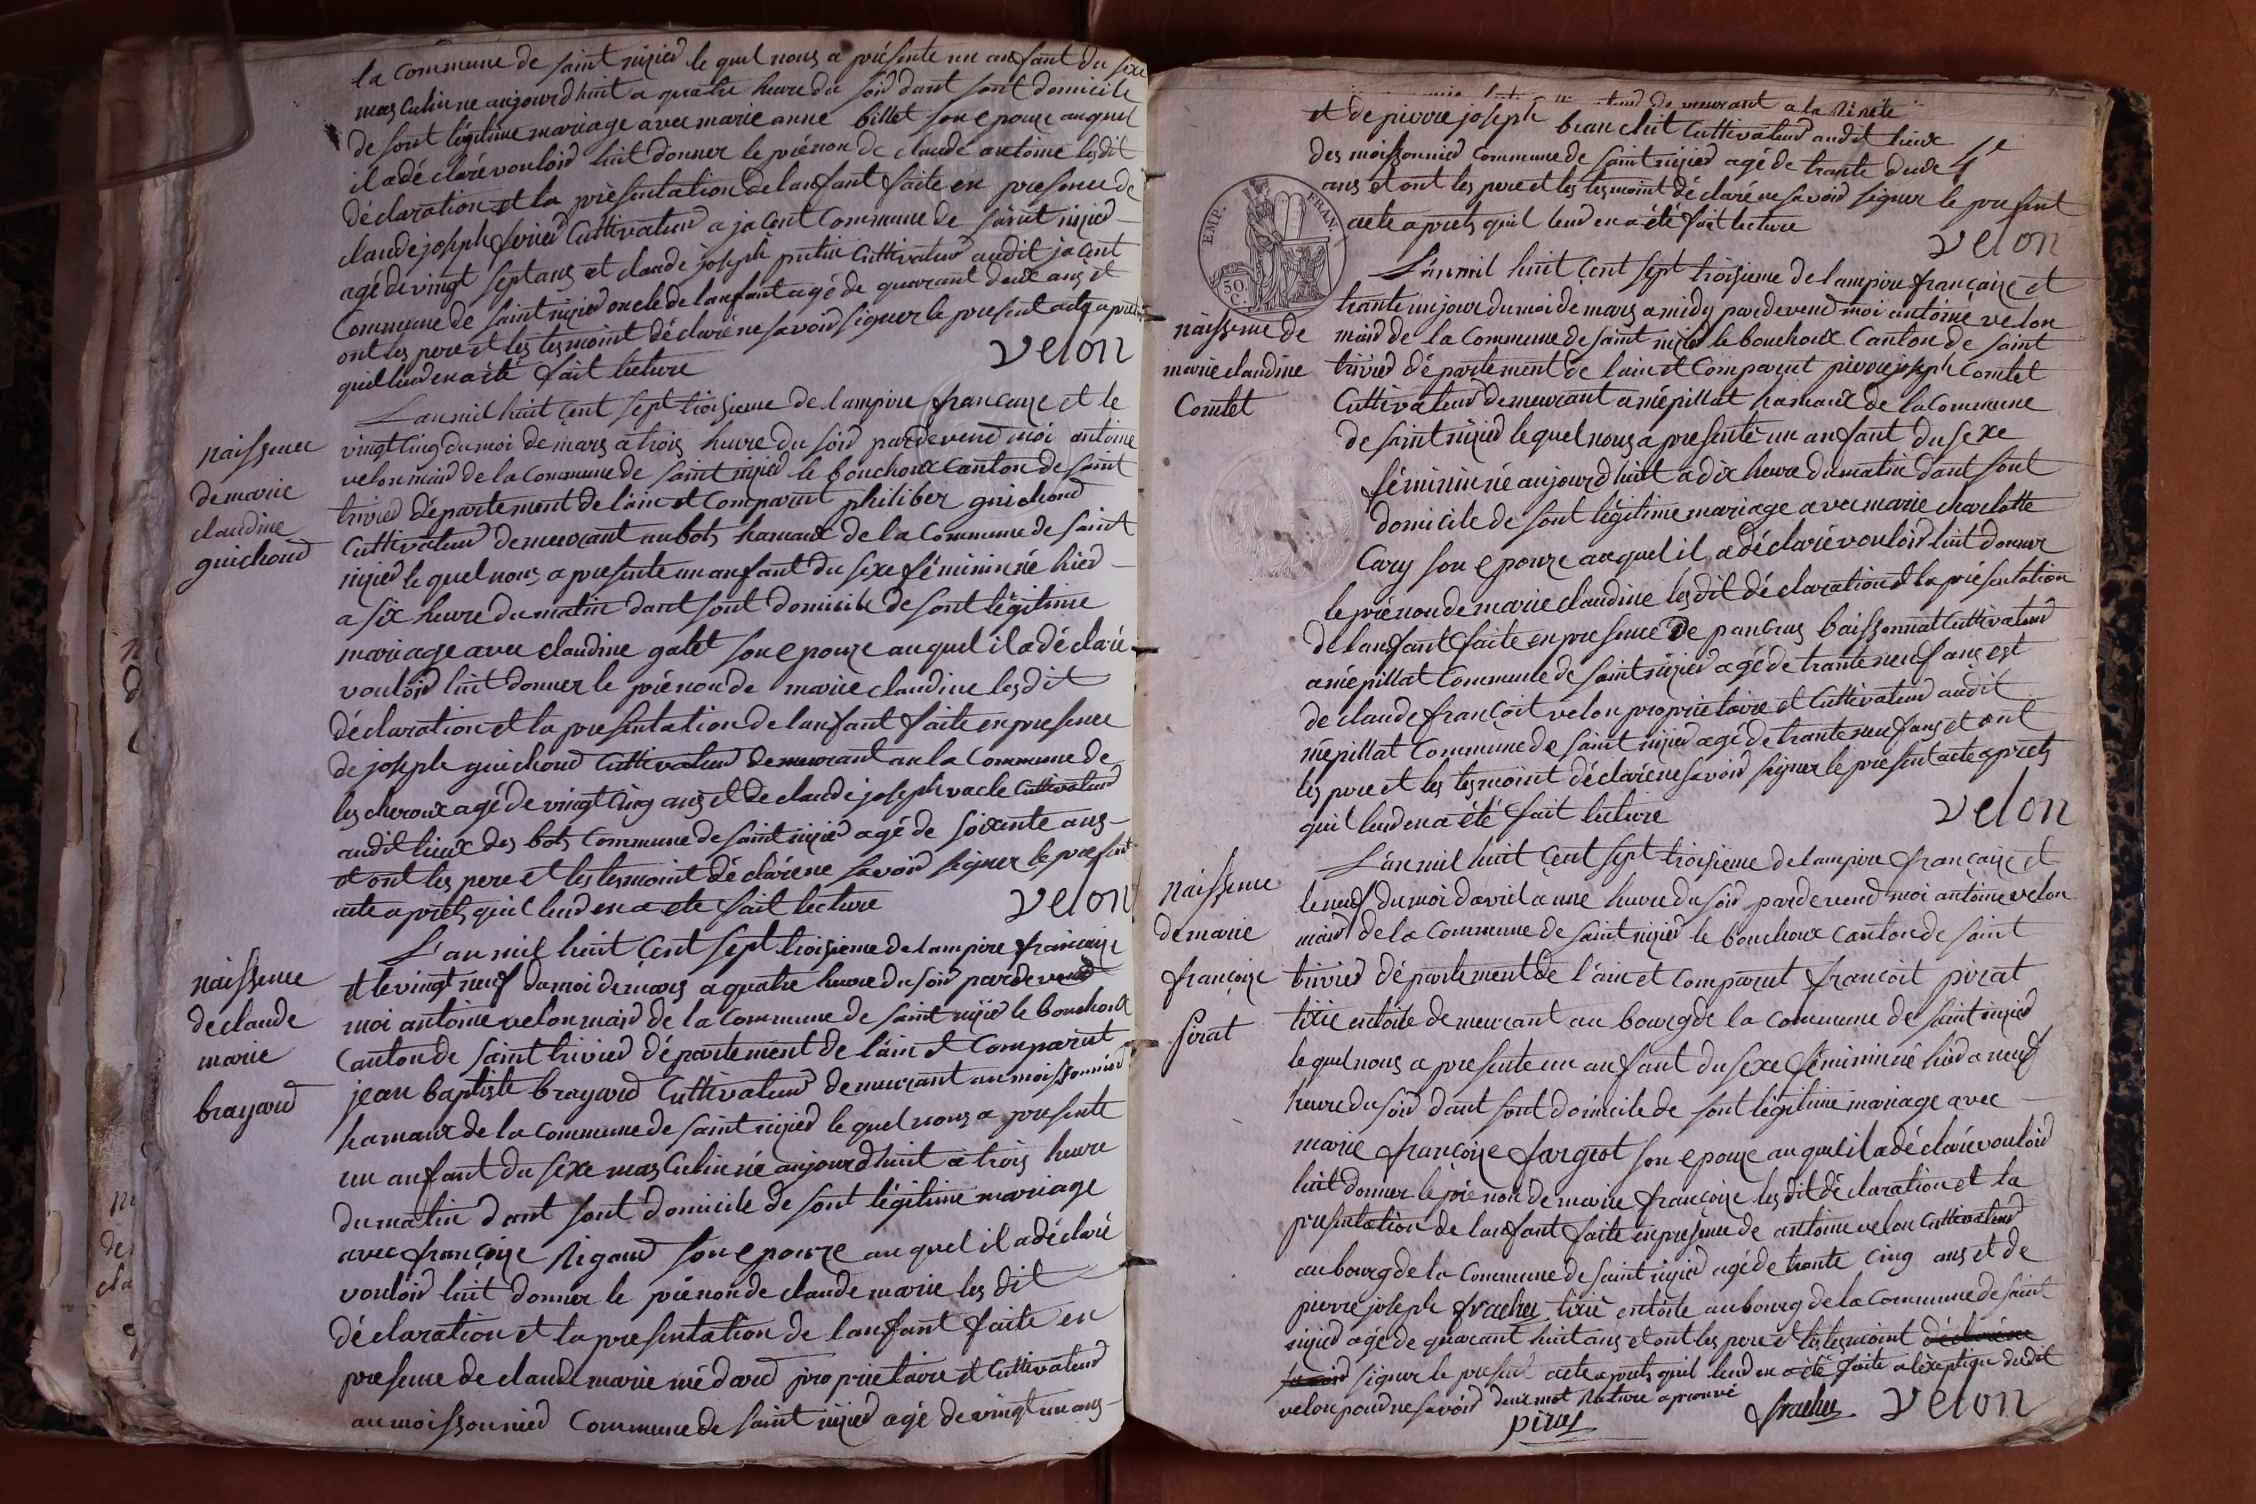 la Commune de saint nizied le quel nous a présente un anfant du sexe
masculin ne aujourdhuit a quatre heure du soid dant sont domicile
de sont légitime mariage avec marie anne billet son epouze auquel
il a déclaré vouloid luit donner le prénon de claude antoine lesdit
déclaration et la présentation de lanfant faite en presence de
claude joseph ferier Cultivateud a jacent Commune de saint nizied
agé de vingt sept ans et claude joseph putin Cultivateud audit jacent
Commune de saint nizied oncle de lanfant agé de quarant deux ans et
ont les pere et les tesmoint déclaré ne savoid signer le present acte aprets
quil leud en a été fait lecture
velon
L'an mil huit cent sept troisieme de lampire françaize et le
vingt cinq du moi de mars a trois heure du soid pardevend moi antoine
velon maid de la Commune de saint nizied le bouchoux Canton de saint
trivied département de l'ain et Comparut philiber guichond
Cultivateud demeurant au bots hamaux de la Commune de saint
nizied le quel nous a presente un anfant du sexe féminin né hied
a six heure du matin dant sont domicile de sont légitime
mariage avec claudine galet son epouze auquel il a déclaré
vouloid luit donner le prénon de marie claudine lesdit
déclaration et la presentation de lanfant faite en presence
de joseph guichoud Cultivateud demeurant au la Commune de
les cheroux agé de vingt cinq ans et de claude joseph vacle Cultivateud
audit lieux des bots Commune de saint nizied agé de soixante ans
et ont les pere et les tesmoint déclaré ne savoid signer le present
acte aprets quil leud en a ete fait lecture
velon
naissence
de marie
claudine
guichoud
L'an mil huit cent sept troisieme de lampire françaize
et le vingt neuf du moi de mars a quatre heure du soid pardevend
moi antoine velon maid de la Commune de saint nizied le bouchoux
Canton de saint trivied département de l'ain et Comparut
jean baptiste brayard Cultivateud demeurant au moissonnied
hamaux de la Commune de saint nizied le quel nous a presente
un anfant du sexe masculin né aujourdhuit a trois heure
du matin dant sont domicile de sont légitime mariage
avec françoize Rigaud son epouze auquel il a déclaré
vouloid luit donner le prénon de claude marie les dit
déclaration et la presentation de lanfant faite en
presence de claude marie médard proprietaire et Cultivateud
au moissonnied Commune de saint nizied agé de vingt un ans
naissence
de claude
marie
brayard
demeurant a la
et de pierre joseph branchit Cultivateud audit lieux
des moissonnied Commune de saint nizied agé de trante deux
ans et ont les pere et les tesmoint déclaré ne savoid signer le present
acte aprets quil leud en a été fait lecture
velon
EMP. FRAN.
50.
C.
L'an mil huit cent sept troisieme de lampire françaize et
trante un jour du moi de mars a midy pardevend moi antoine velon
maid de la Commune de saint nizied le bouchoux Canton de saint
trivied département de l'ain et Comparut pierre joseph Comtet
Cultivateud demeurant a mépillat hamaux de la Commune
de saint nizied le quel nous a presente un anfant du sexe
féminin né aujourdhuit a dix heure du matin dant sont
domicile de sont légitime mariage avec marie charlotte
Cary son epouze auquel il a déclaré vouloid luit donner
le prénon de marie claudine lesdit déclaration et la présentation
de lanfant faite en presence de pancras baissonnat Cultivateud
a mépillat Commune de saint nizied agé de trante neuf ans est
de claude françoit velon proprietaire et Cultivateud audit
mépillat Commune de saint nizied agé de trante neuf ans et ont
les pere et les tesmoint déclaré ne savoid signer le present acte aprets
quil leud en a été fait lecture
velon
naissence de
marie claudine
Comtet
L'an mil huit cent sept troisieme de lampire françaize et
le neuf du moi davril a une heure du soid pardevend moi antoine velon
maid de la Commune de saint nizied le bouchoux canton de saint
trivied département de l'ain et comparut françoit pirat
tixié en toile demeurant au bourg de la Commune de saint nizied
le quel nous a presente un anfant du sexe féminin né hied a neuf
heure du soid dant sont domicile de sont légitime mariage avec
marie françoize fargeot son epouze auquel il a déclaré vouloid
luit donner le prénon de marie françoize les dit déclaration et la
presentation de lanfant faite en presence de antoine velon Cultivateud
au bourg de la Commune de saint nizied agé de trante cinq ans et de
pierre joseph frachet tixié en toile au bourg de la Commune de saint
nizied agé de quarant huit ans et ont les pere et les tesmoint déclaré ne
savoid signer le present acte aprets quil leud en a été faite a l'exeption dudit
velon poud ne savoid deux mot Rature aprouvé
pirat
frachet
velon
naissence
de marie
françoize
pirat